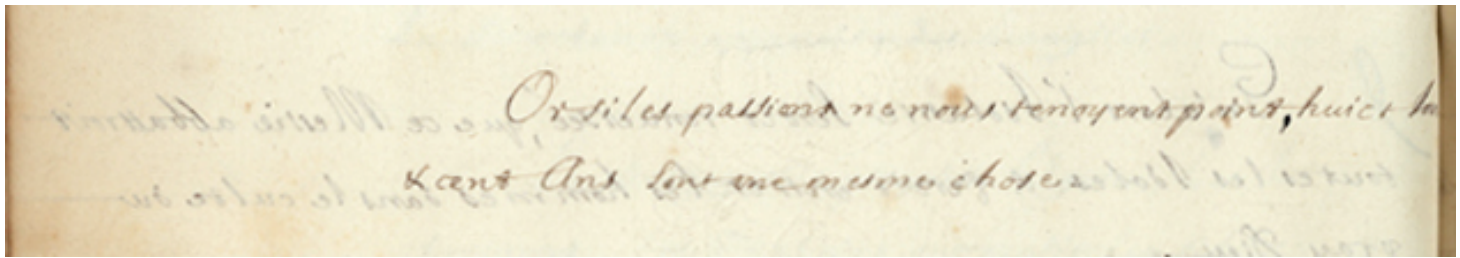 Or si les passions ne nous tenoyent point, huict
& cent Ans sont une mesme chose.